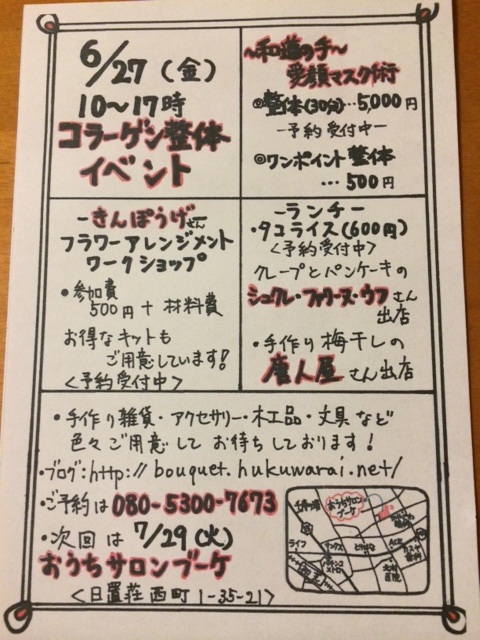 6/27 (金)
10〜17時
コラーゲン整体
イベント
〜和道の手〜
愛顔マスク術
◎整体(30分)…5,000円
ー予約受付中ー
◎ワンポイント整体
…500円
ーきんぽうげさんー
フラワーアレンジメント
ワークショップ
・参加費
500円+材料費
お得なキットも
ご用意しています!
<予約受付中>
ーランチー
・タコライス(600円)
<予約受付中>
クレープとパンケーキの
シュクレ・ファリーヌ・ウフさん
出店
・手作り梅干しの
唐人屋さん出店
・手作り雑貨・アクセサリー・木工品・文具など
色々ご用意してお待ちしております!
・ブログ:http://bouquet.hukuwarai.net/
・ご予約は080-5300-7673
・次回は7/29(火)
おうちサロンブーケ
<日置荘西町1-35-21>
おうちサロン
ブーケ
ライフ